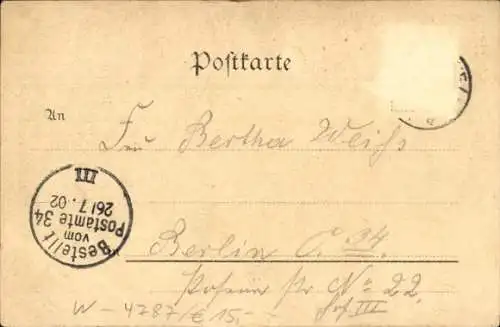 Postkarte
An
Frl. Bertha Weihs
Bestellt
vom
Postamte 34
26/7.02
III
Berlin C. 34
Posener Str No 22
Hof III
W - 4787/€ 15,-